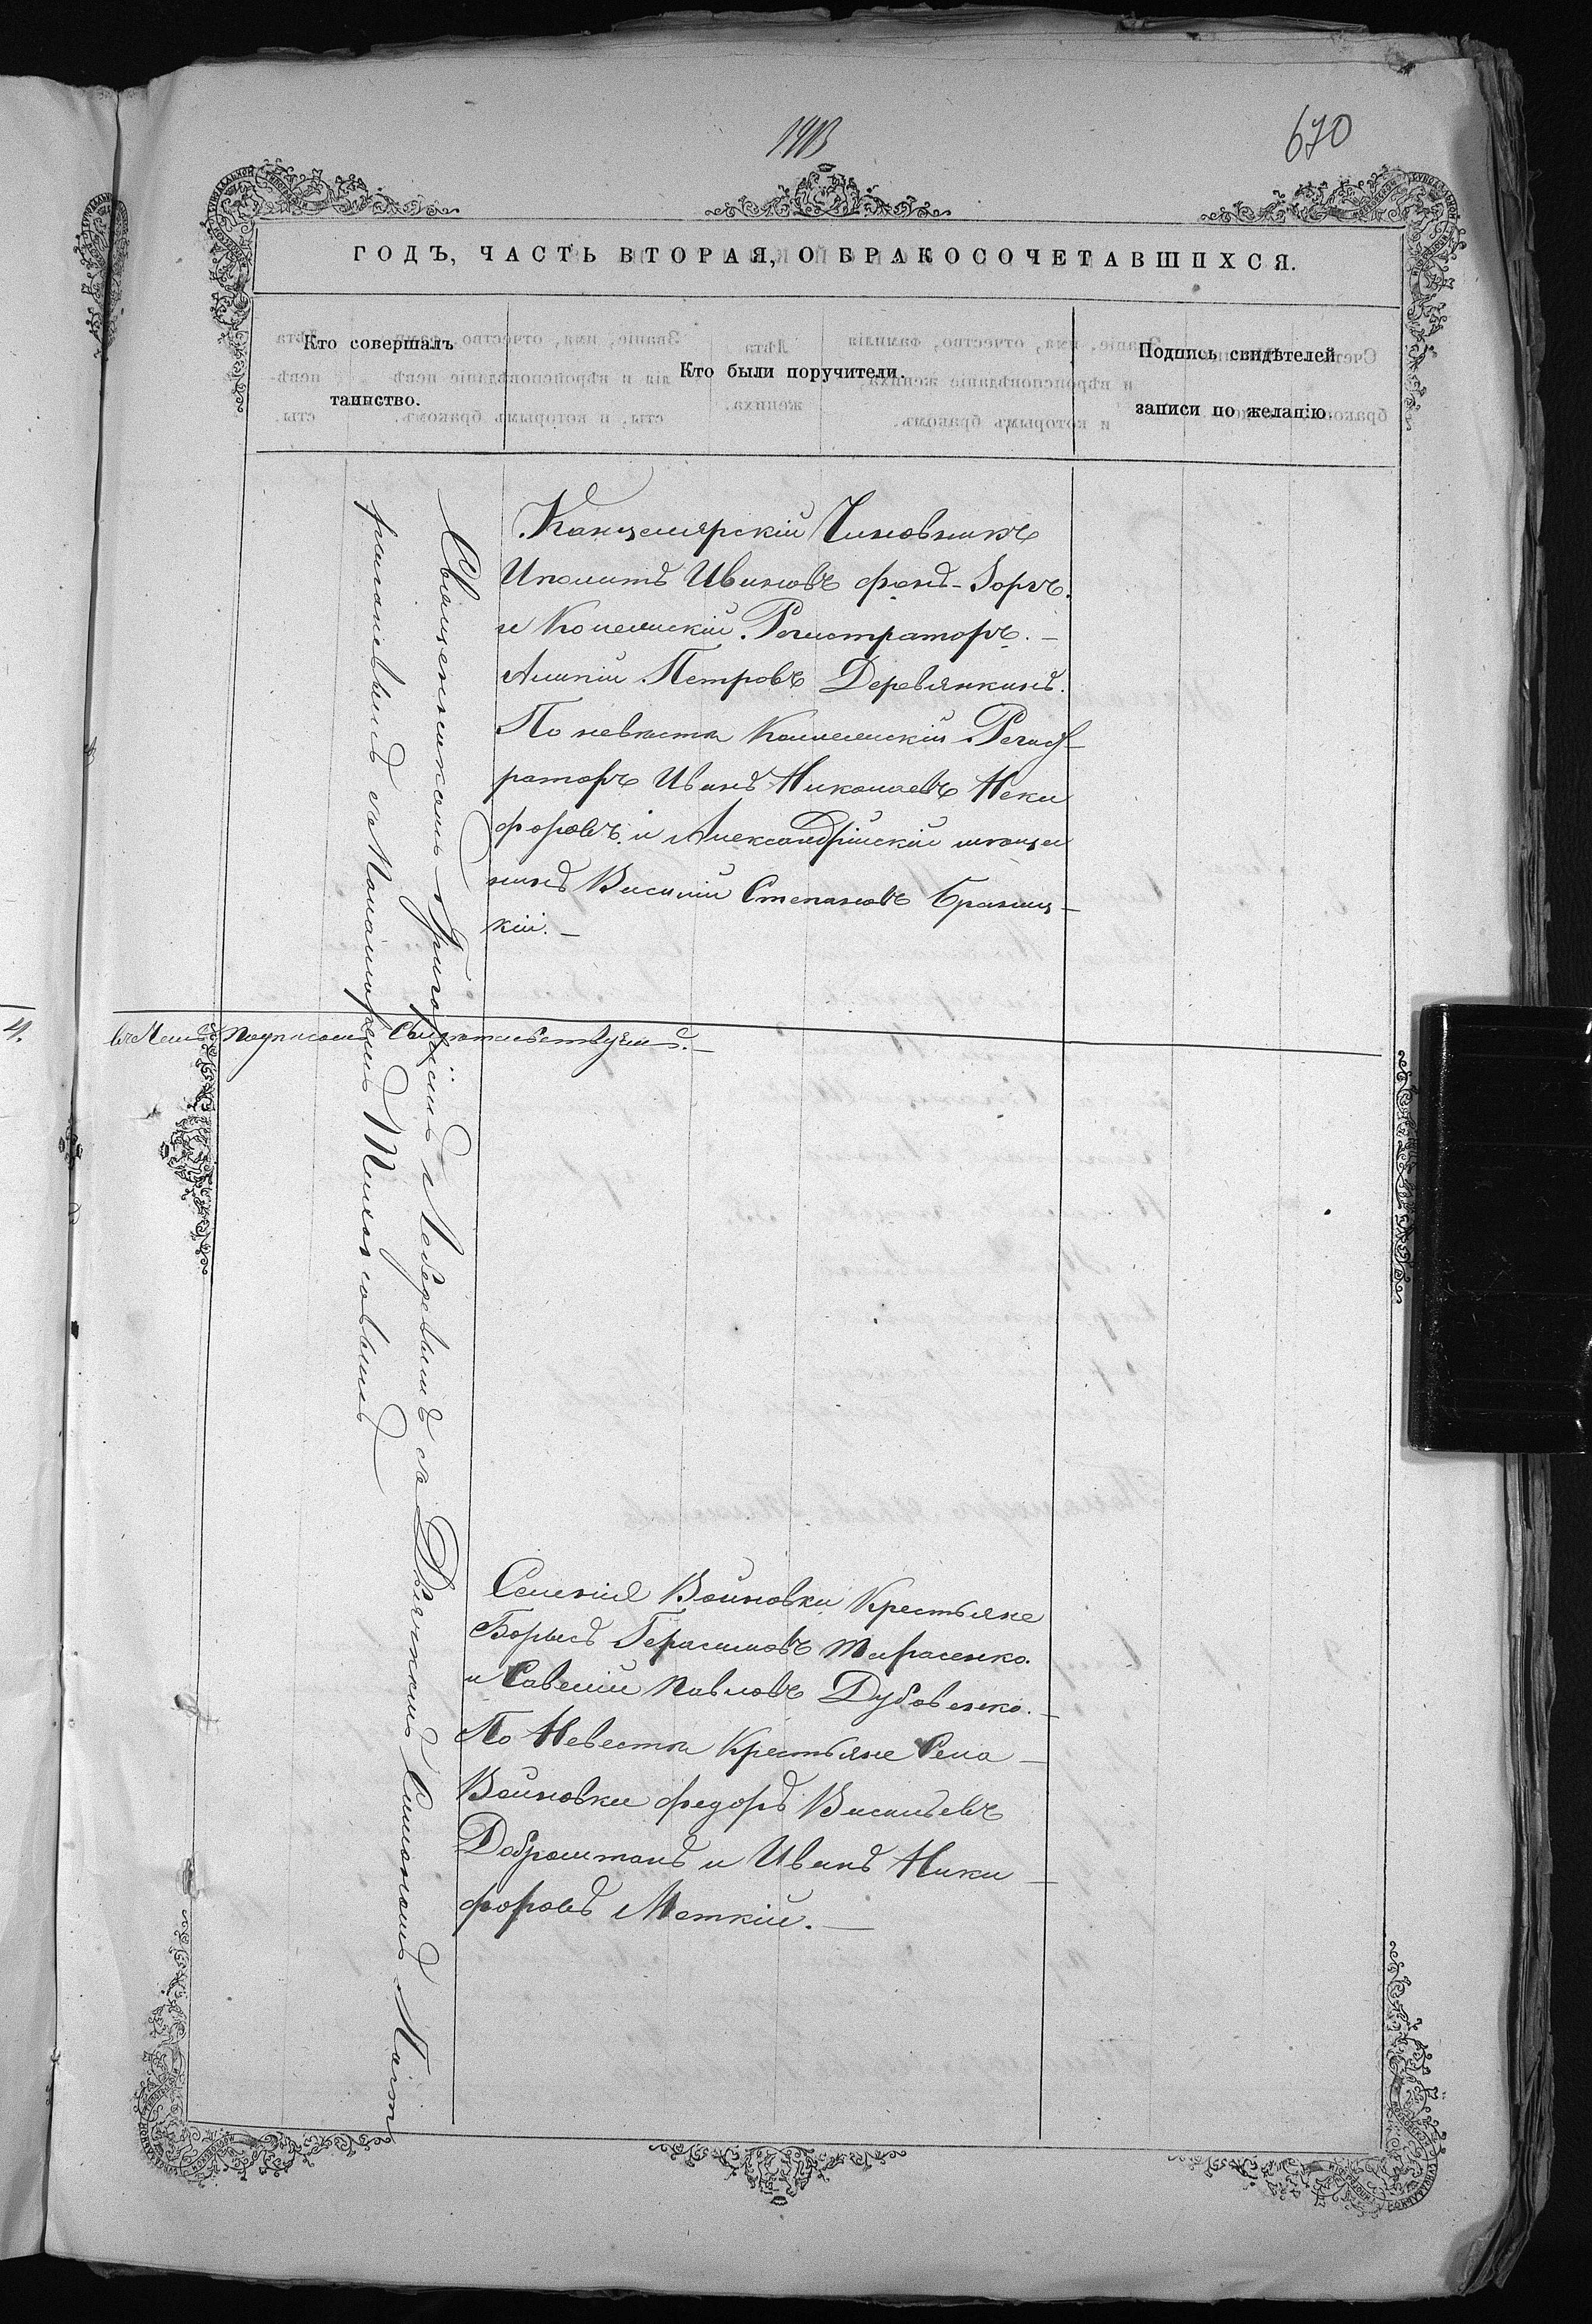 670
ГОДЪ, ЧАСТЬ ВТОРАЯ, О БРАКОСОЧЕТАВШИХСЯ.
Кто совершалъ
таинство.
Кто были поручители.
Подпись свидѣтелей
записи по желанію.
Священникомъ Григоріемъ Лебедевымъ съ Дьячкомъ Симономъ
съ Паламаремъ
Канцелярскій Чиновникъ
Иполитъ Ивановъ фонъ-Бергъ
и Колежскій Регистраторъ.
Алипій Петровъ Деревянкинъ.
По невѣстѣ Коллежскій Регист-
раторъ Иванъ Николаевъ Неки
форовъ и Александрійскій мѣщан
инъ Василій Степановъ Браниц-
кій.
4.
въ чемъ подписомъ Свидѣтельствуемъ.
Селенія Войновки Крестьяне
Борисъ Герасимовъ Тарасенко
и Савелій Павловъ Дубовенко.
По Невестѣ Крестьяне Села
Войновки Федоръ Васильевъ
Доброштанъ и Иванъ Ники
форовъ Меткій.